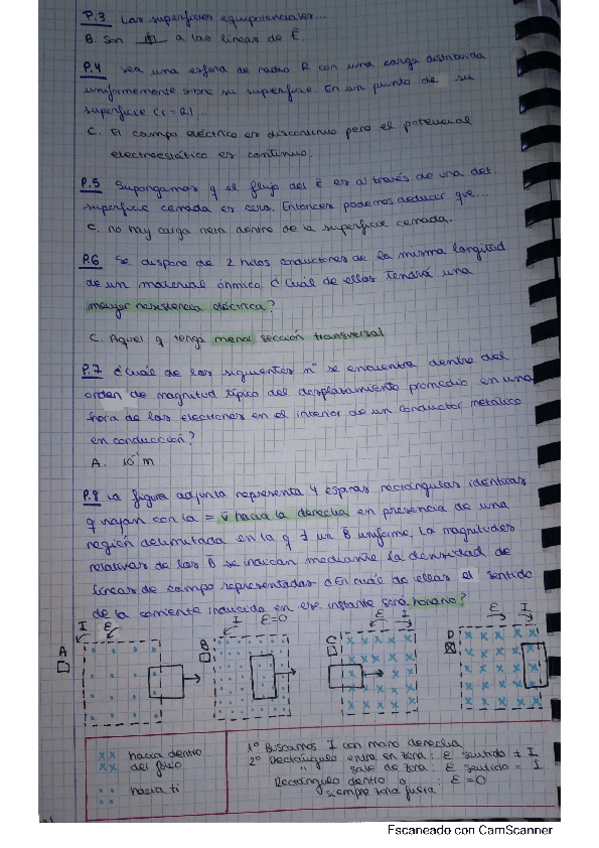 P.3 Las superficies equipotenciales...
B. Son ⊥ a las líneas de E.
P.4 Sea una esfera de radio R con una carga distribuida
uniformemente sobre su superficie. En un punto de su
superficie (r=R)...
C. El campo eléctrico es discontinuo pero el potencial
electroestático es continuo.
P.5 Supongamos q el flujo del E es a través de una det.
superficie cerrada es cero. Entonces podemos deducir que...
C. no hay carga neta dentro de la superficie cerrada.
P.6 Se dispone de 2 hilos conductores de la misma longitud
de un material óhmico ¿Cuál de ellos tendrá una
mayor resistencia eléctrica?
C. Aquel q tenga menos sección transversal
P.7 ¿Cuál de los siguientes nº se encuentra dentro del
orden de magnitud típico del desplazamiento promedio en una
hora de los electrones en el interior de un conductor metálico
en conducción?
A. 10⁻¹ m
P.8 La figura adjunta representa 4 espiras rectangulares idénticas
q viajan con la = v hacia la derecha en presencia de una
región delimitada en la q ∃ un B uniforme. La magnitudes
relativas de los B se indican mediante la densidad de
líneas de campo representadas ¿En cuál de ellas el sentido
de la corriente inducida en ese instante será horario?
I ε I ε=0 ε I ε I
A B C D
xx hacia dentro
xx del folio
hacia ti
1º Buscamos I con mano derecha
2º Rectángulo entra en zona: ε sentido ≠ I
" sale de zona: ε sentido = I
Rectángulo dentro o
siempre zona fuera: ε=0
Escaneado con CamScanner